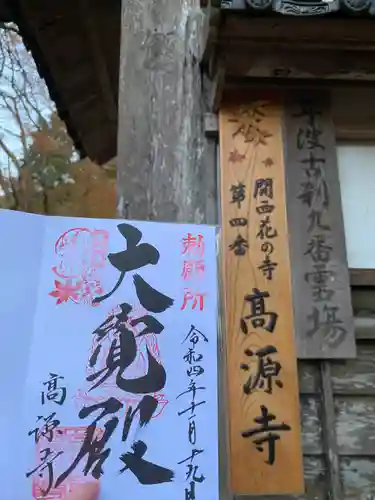 丹波古刹九番霊場
関西花の寺
第四番
高源寺
令和四年十一月十九日
大覚殿
高源寺